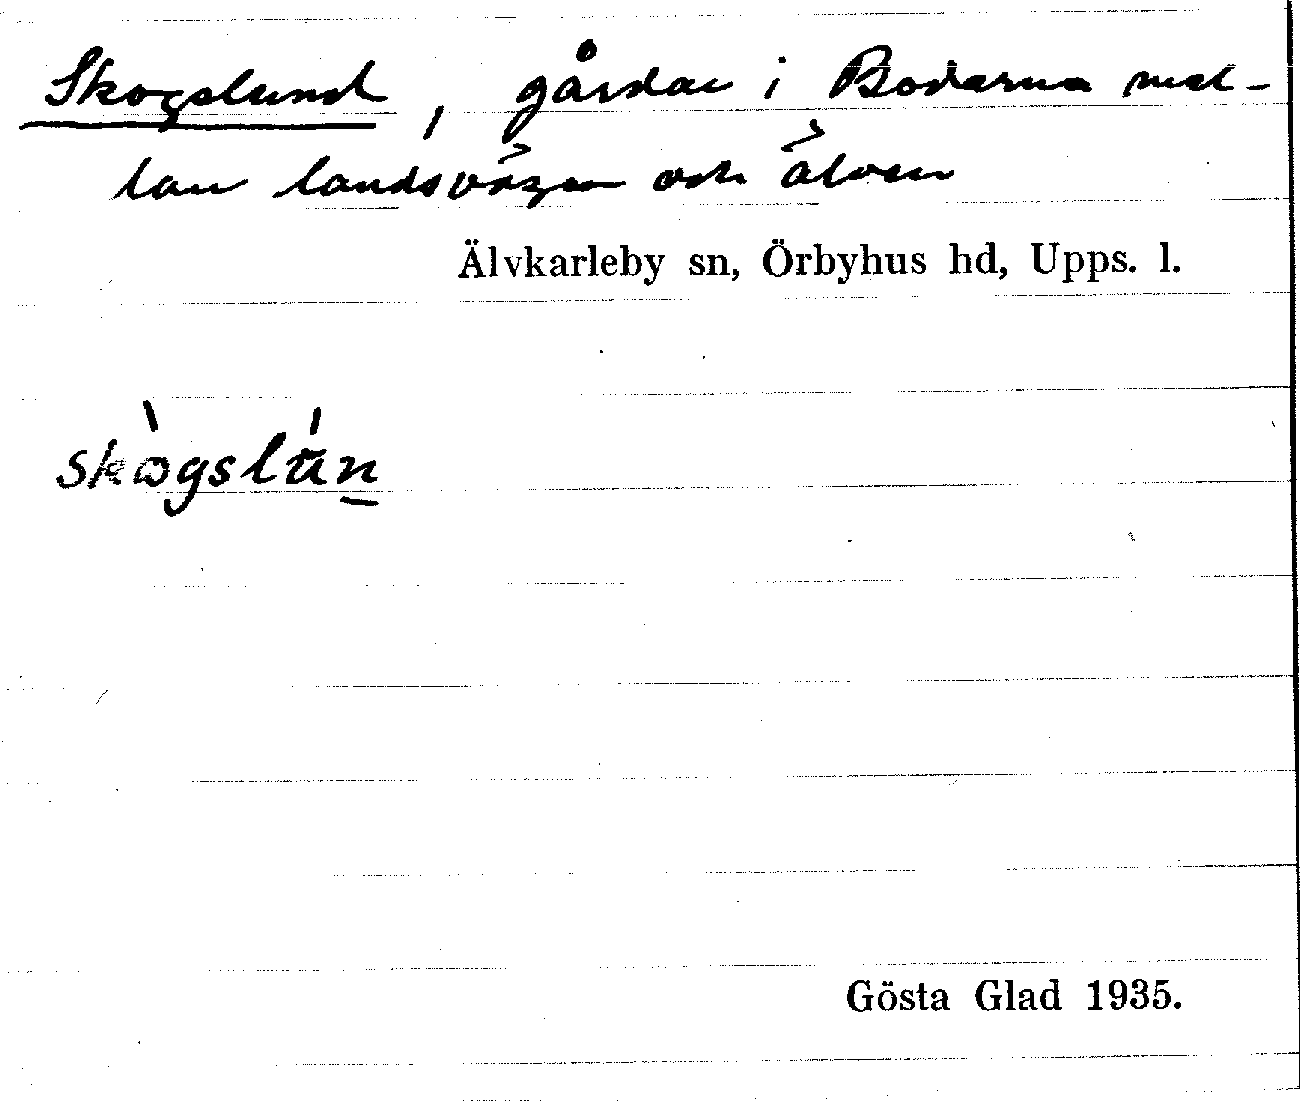 Skogslund, gårdar i Bodarna mel-
lan landsvägen och älven
Älvkarleby sn, Örbyhus hd, Upps. l.
skògslún
Gösta Glad 1935.